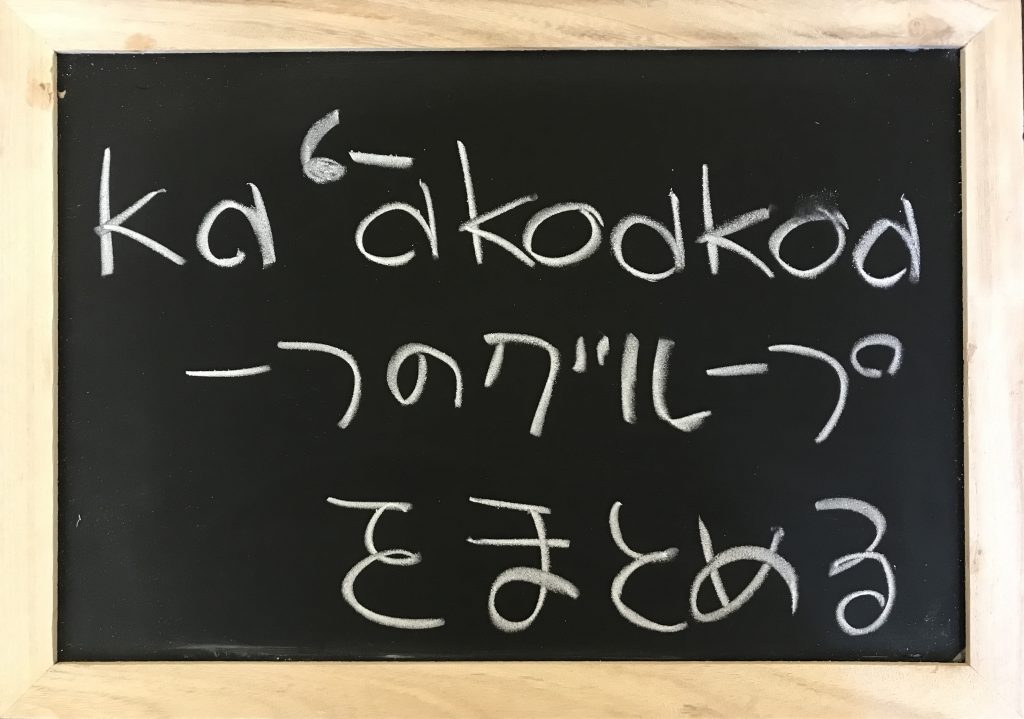 kaʻākoakoa
一つのグループ
をまとめる